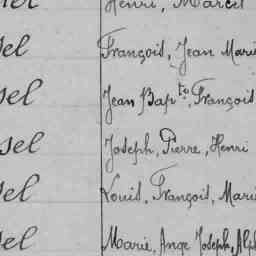 Henri, Marcel
sel François, Jean Marie
sel Jean Bapte, François
sel Joseph, Pierre, Henri
sel Louis, François, Marie
sel Marie, Ange Joseph, Alph